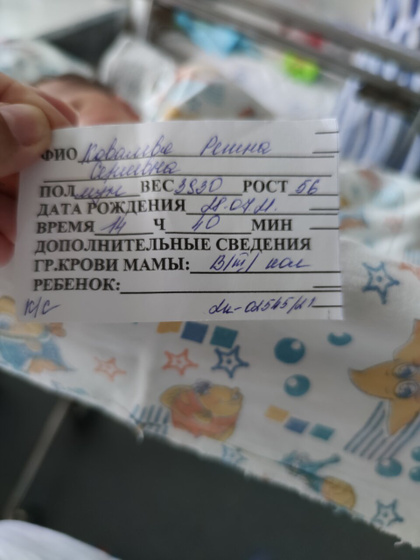 ФИО Ковалева Регина
Сергеевна
ПОЛ муж ВЕС 3920 РОСТ 56
ДАТА РОЖДЕНИЯ 28.07.21.
ВРЕМЯ 14 Ч 40 МИН
ДОПОЛНИТЕЛЬНЫЕ СВЕДЕНИЯ
ГР.КРОВИ МАМЫ: В/III/ пол
РЕБЕНОК:
К/С